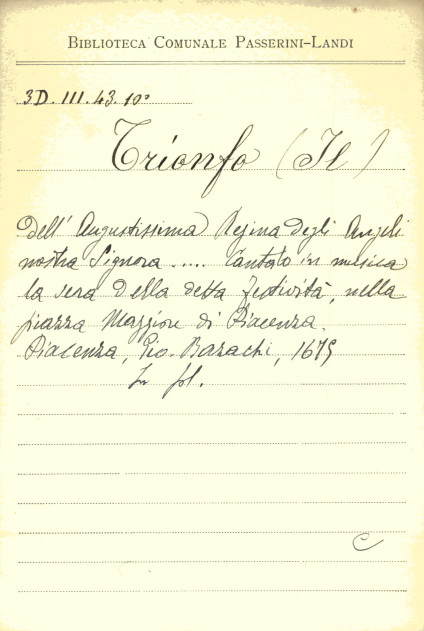 BIBLIOTECA COMUNALE PASSERINI-LANDI
3D. III. 43. 10º
Trionfo (Il)
Dell' Augustissima Regina degli Angeli
nostra Signora ..... Cantato in musica
la sera della detta festività, nella
piazza Maggiore di Piacenza.
Piacenza, Gio. Bazachi, 1675
In fol.
C